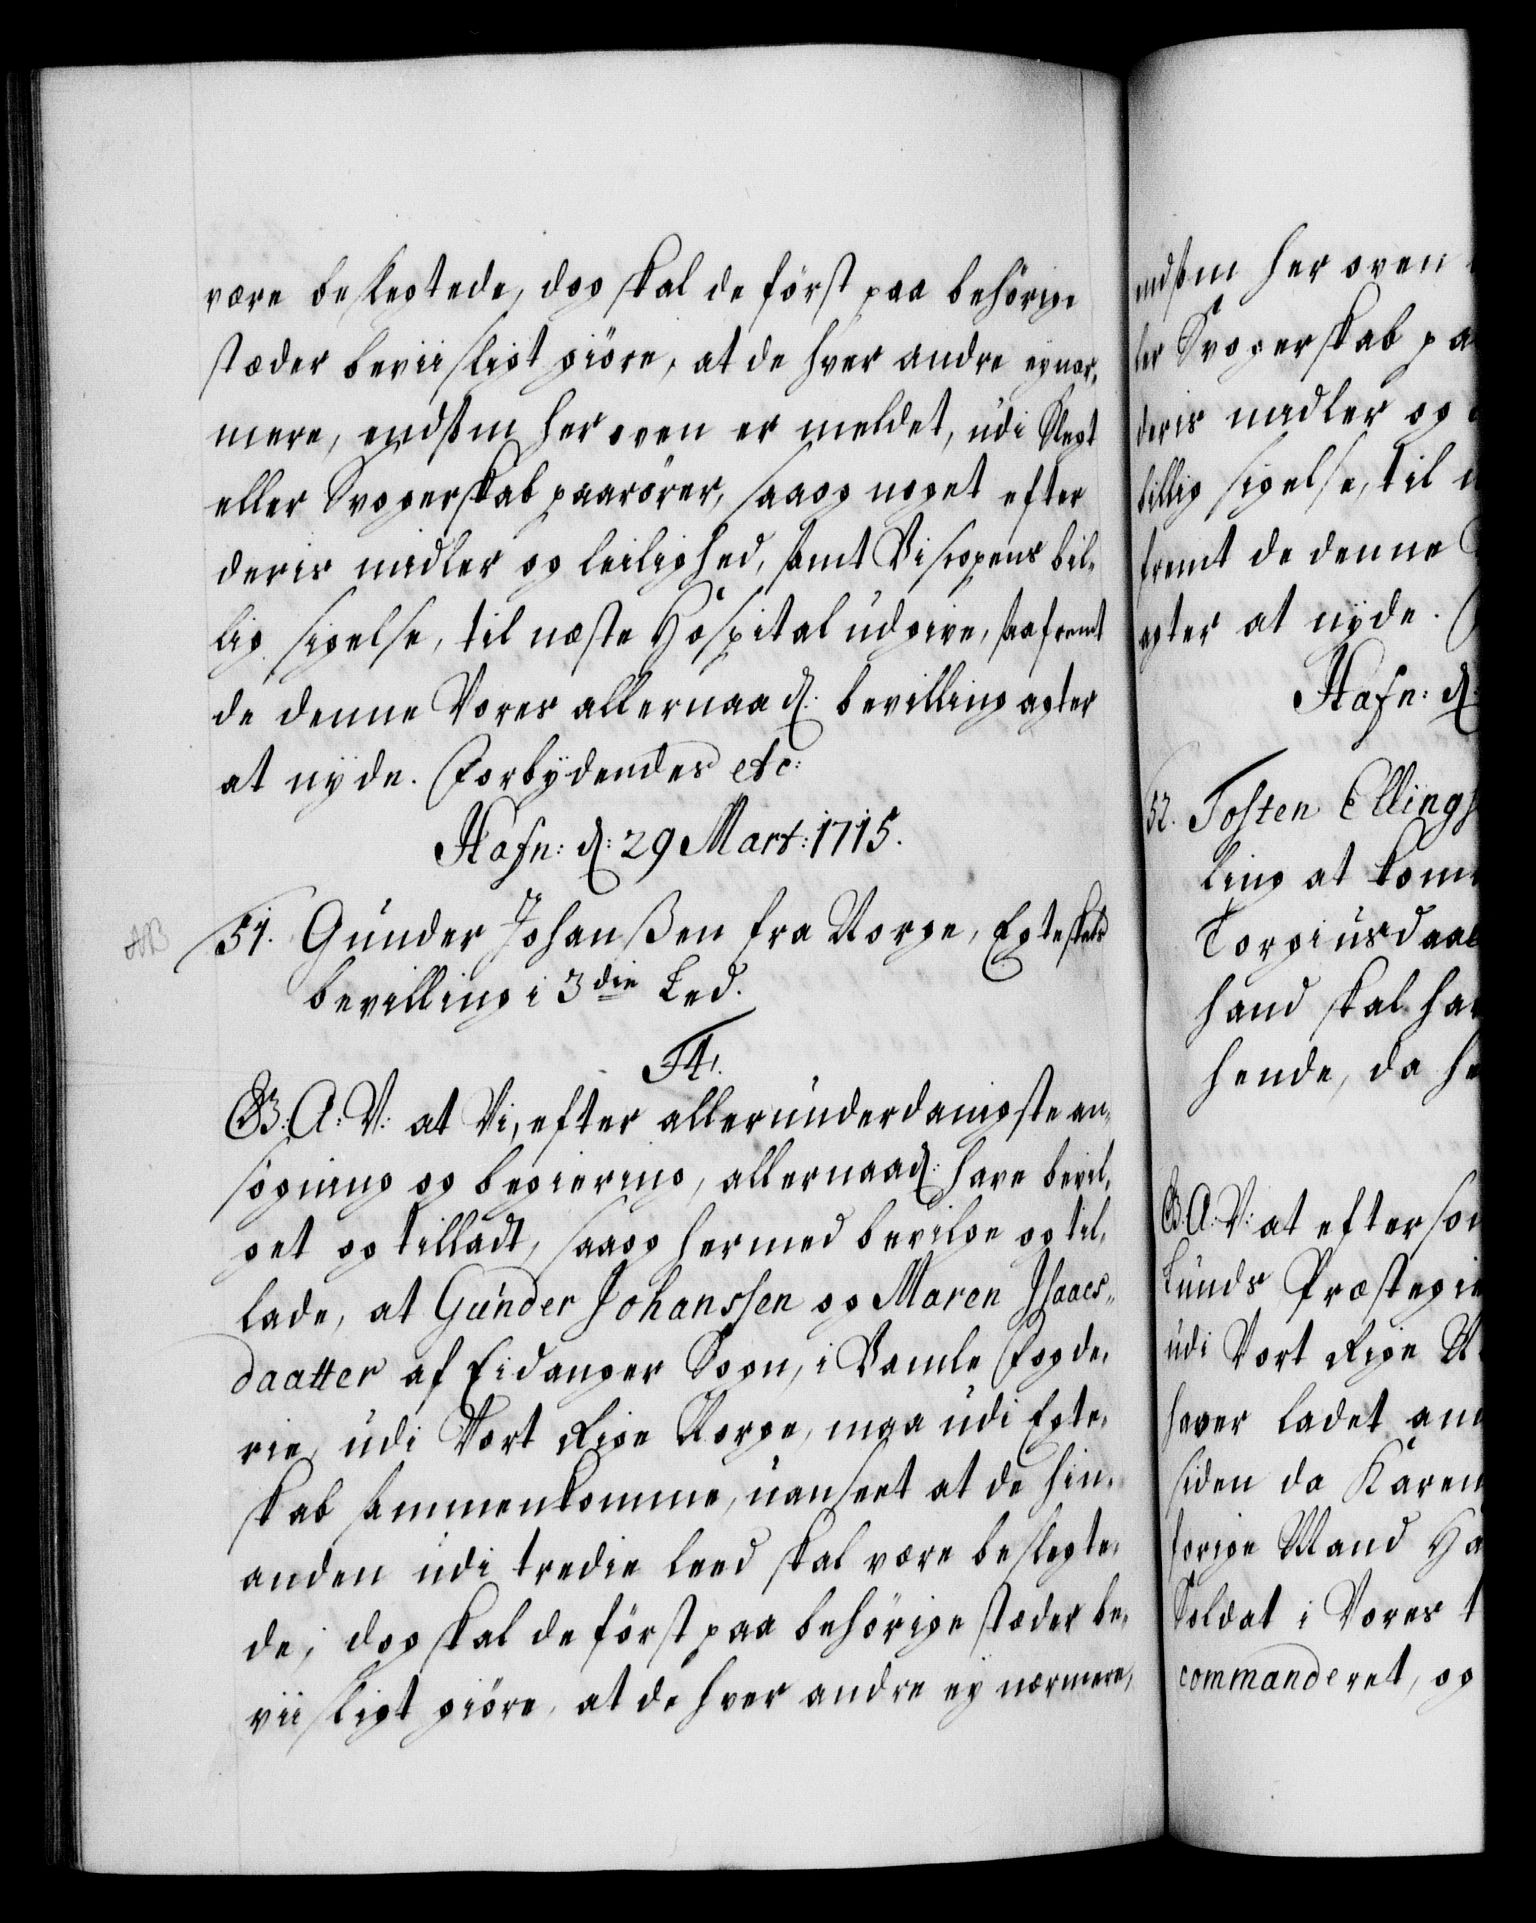 være beslegtede, dog skal de först paa behörige
stæder beviisligt giöre, at de hver andre ey nær,
mere, endsom her oven er meldet, udi Slegt
eller Svogerskab paarörer, saa og noget efter
deris midler og leilighed, samt Biscopens bil,
lig sigelse, til næste Hospital udgive, saafremt
de denne Vores allernaad: bevilling agter
at nyde. Forbydendes etc:
Hafn: d: 29 Mart: 1715.
AB
51. Gunder Johanßen fra Norge, Egteskabs
bevilling i 3die Led.
F4.
G. A: V: at Vi, efter allerunderdanigste an,
sögning og begiering, allernaad: have bevil,
get og tilladt, saa og hermed bevilge og til,
lade, at Gunder Johanssen og Maren Isaacs,,
daatter af Eidanger Sogn, i Bamle Fogde,
rie, udi Vort Rige Norge, maa udi Egte,
skab sammenkomme, uanseet at de hin,
anden udi tredie leed skal være beslegte,
de; dog skal de först paa behörige stæder be,
viisligt giöre, at de hver andre ey nærmere,
endsom her oven
ler Svogerskab pa
deris midler og
billig sigelse, til n
fremt de denne
agter at nyde.
Hafn: d:
52. Tosten Ellings
ling at kom
Torgiusdaa
hand skal ha
hende, da h
G. A: V: at eftersom
Lunds Præstegie
udi Vort Rige N
haver ladet an
siden da Karen
forige Mand Ha
Soldat i Vores t
commanderet, og